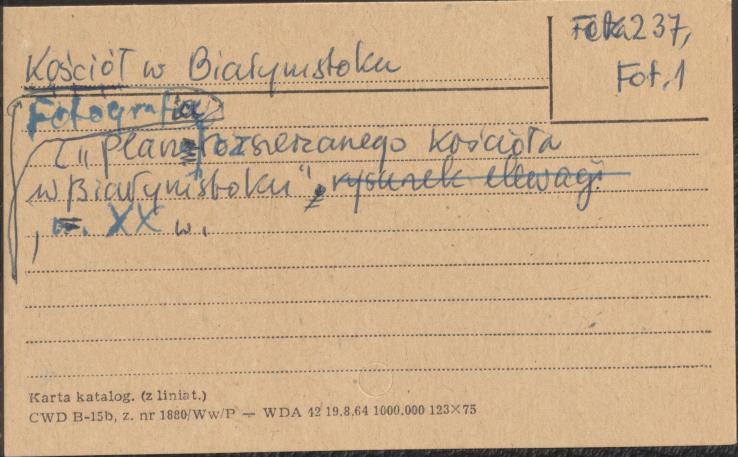 Teka 237,
Fot. 1
Kościół w Białymstoku
Fotografia
„Plan rozszerzanego Kościoła
w Białymstoku", rysunek elewacji
, XX w.
Karta katalog. (z liniat.)
CWD B-15b, z. nr 1880/Ww/P — WDA 42 19.8.64 1000.000 123×75